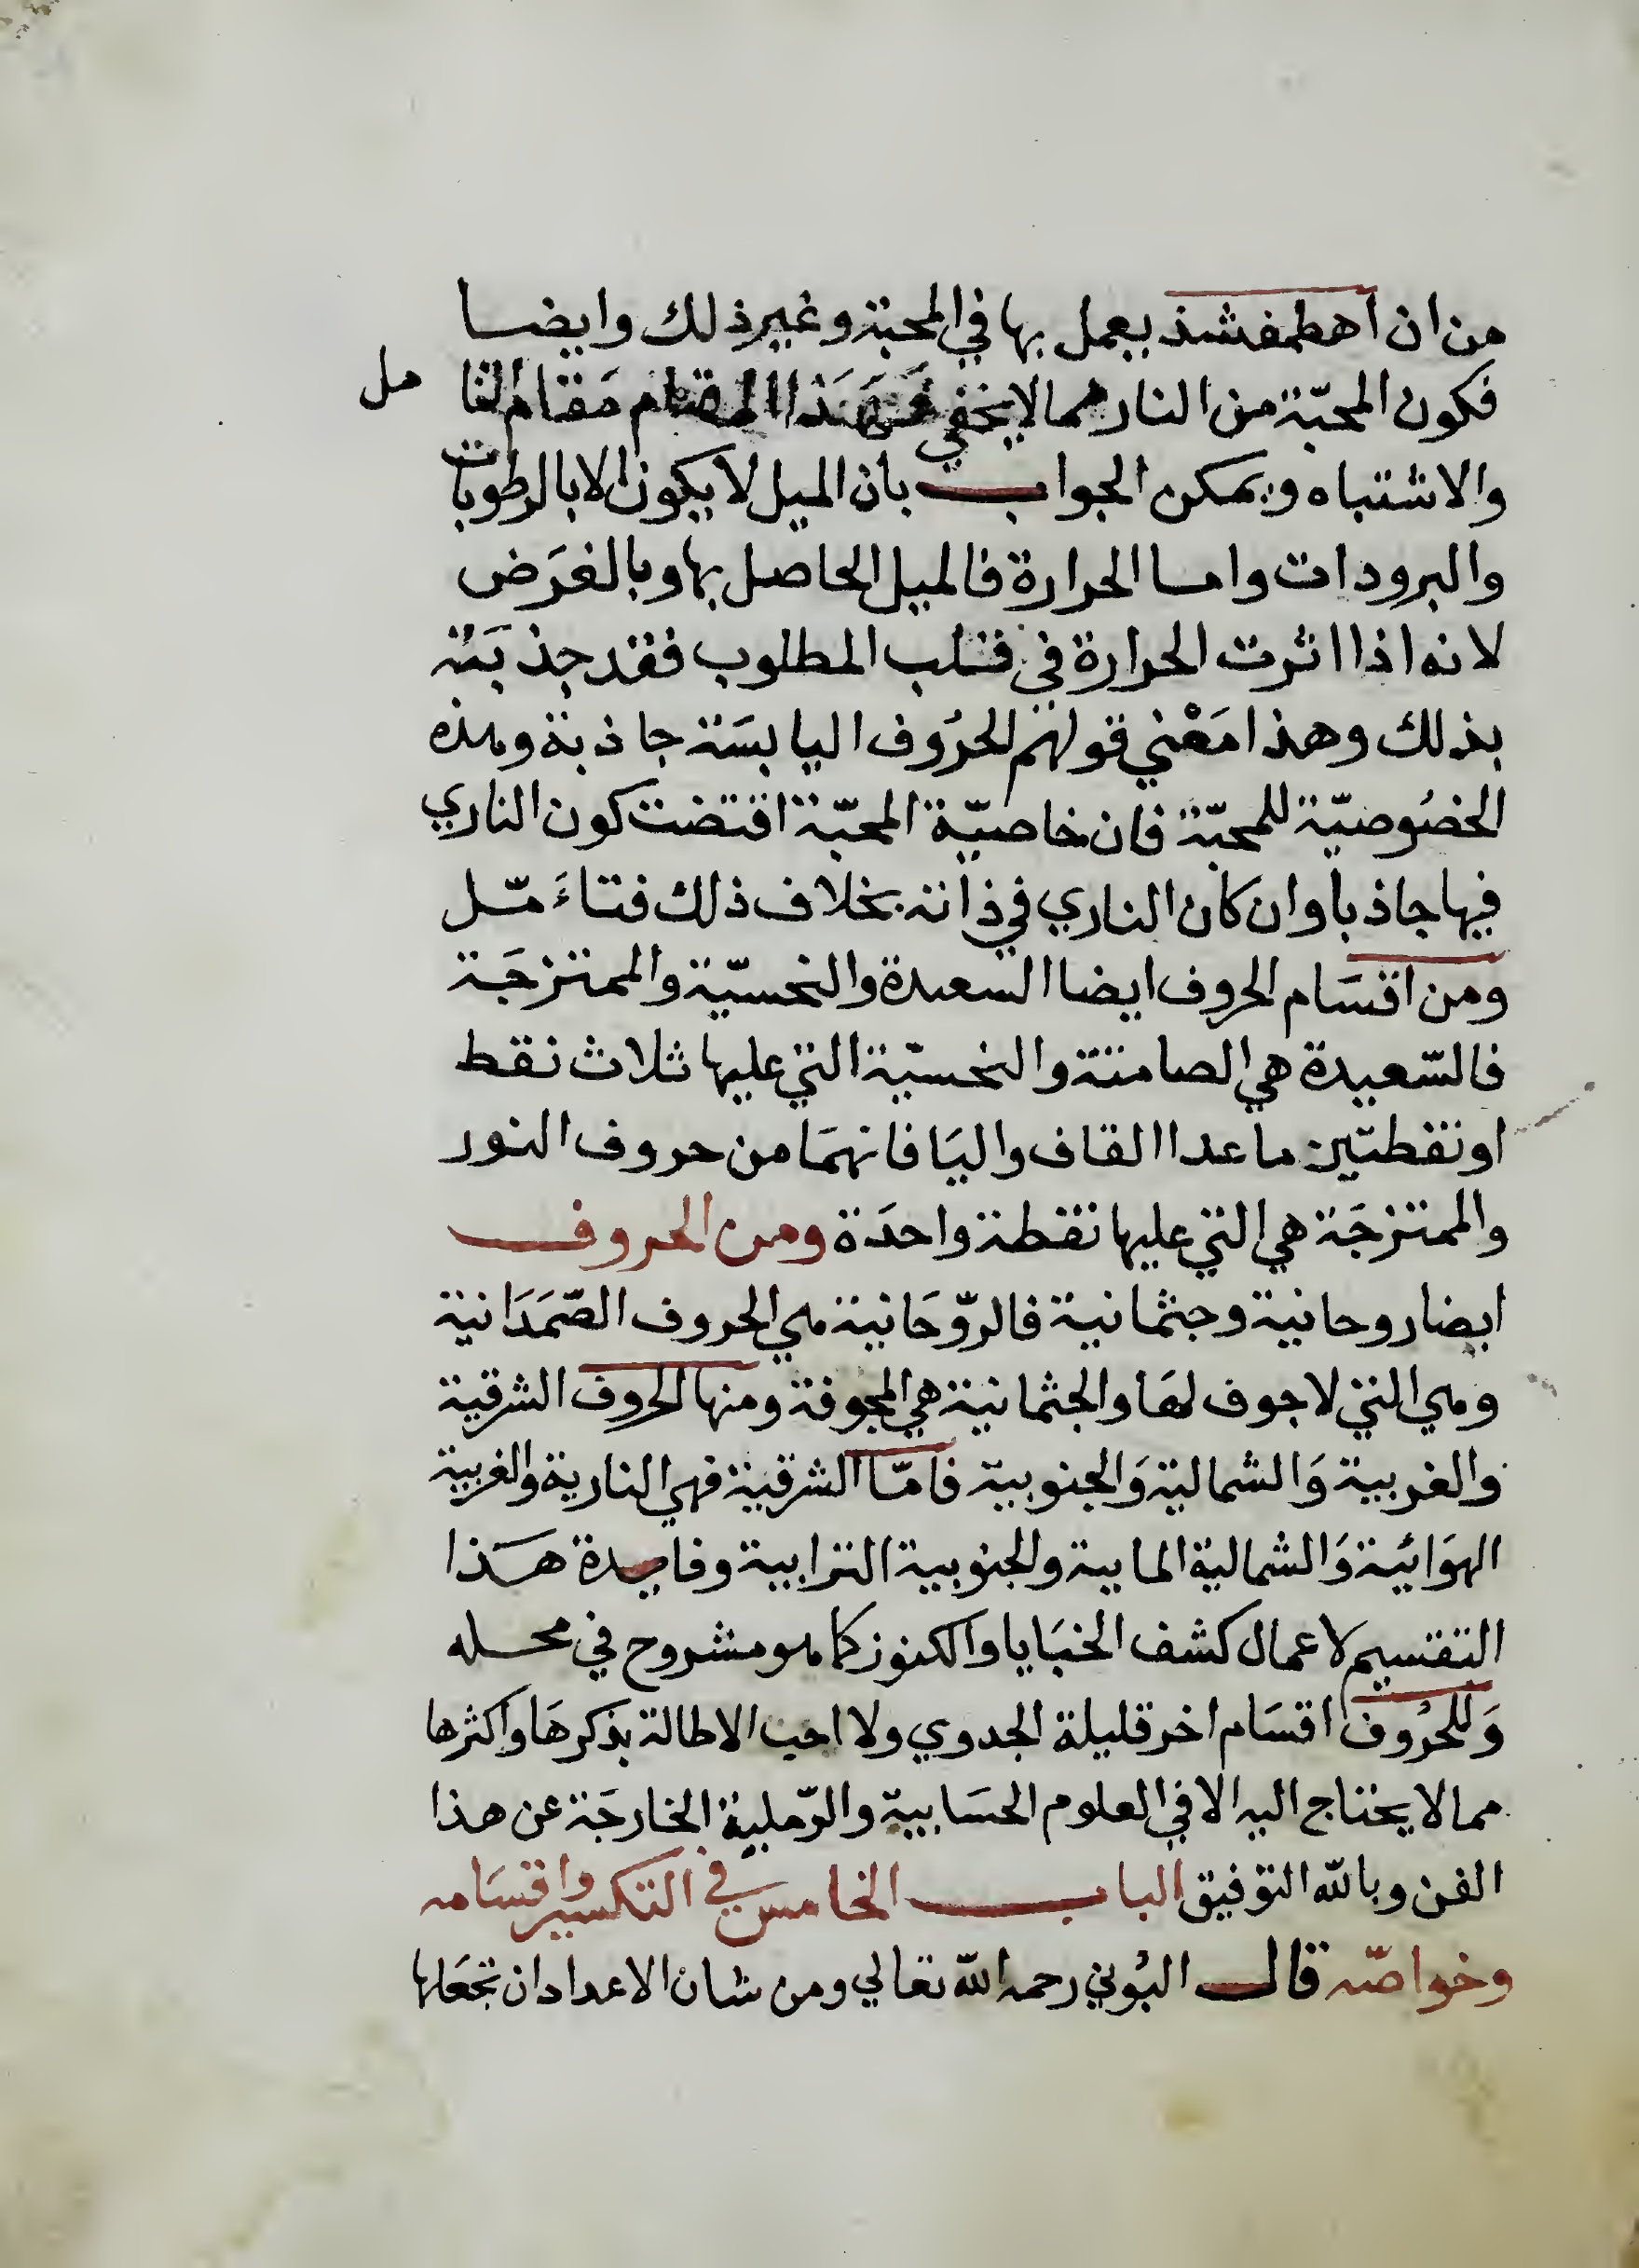 من ان اهطمفشذ يعمل بها في المحبة وغير ذلك وايضا
فكون المحبّة من النار مما لا يخفي فهَذا المقام مَقام التا مل
والاشتباه ويمكن الجواب بان الميل لا يكون الا بالرطوبات
والبرودات واما الحرارة فالميل الحاصل بها وبالغرَض
لانه اذا اثرت الحرارة في قلب المطلوب فقد جذبَته
بذلك وهذا مَعْني قولهم الحرُوف اليابسَة جاذبة وهذه
الخصُوصيّة للمحبّة فان خاصيّة المحبّة اقتضت كون الناري
فيها جاذبا وان كان الناري في ذاته بخلاف ذلك فتاءَمّل
ومن اقسَام الحروف ايضا السعيدة والنحسيّة والممتزجَة
فالسّعيدة هي الصامتة والنحسيّة التي عليها ثلاث نقط
او نقطتين ما عدا القاف واليَا فانهمَا من حروف النور
والممتزجَة هي التي عليها نقطة واحدَة ومن الحروف
ايضا روحانية وجثمانية فالرّوحَانية هي الحروف الصّمَدَانية
وهي التي لا جوف لهَا والجثمانية هي المجوفة ومنها الحروف الشرقية
والغربية وَالشمالية وَالجنوبية فامّا الشرقية فهي النارية والغربية
الهوَائية وَالشمالية المايية والجنوبية الترابية وفايدة هَذا
التقسيم لاعمال كشف الخبَايا والكنوز كما هو مشروح في محله
وَللحرُوف اقسَام اخر قليلة الجدوي ولا احب الاطالة بذكرهَا واكثرها
مما لا يحتاج اليه الا في العلوم الحسَابية والرّملية الخارجَة عن هذا
الفن وبالله التوفيق الباب الخامس في التكسير واقسَامه
وخواصّه قال البُوني رحمه الله تعالي ومن شان الاعداد ان تجعَلها